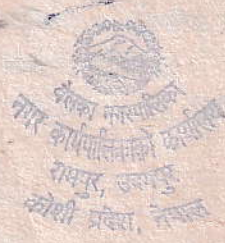 बेलका नगरपालिका
नगर कार्यपालिकाको कार्यालय
रामपुर, उदयपुर
कोशी प्रदेश, नेपाल